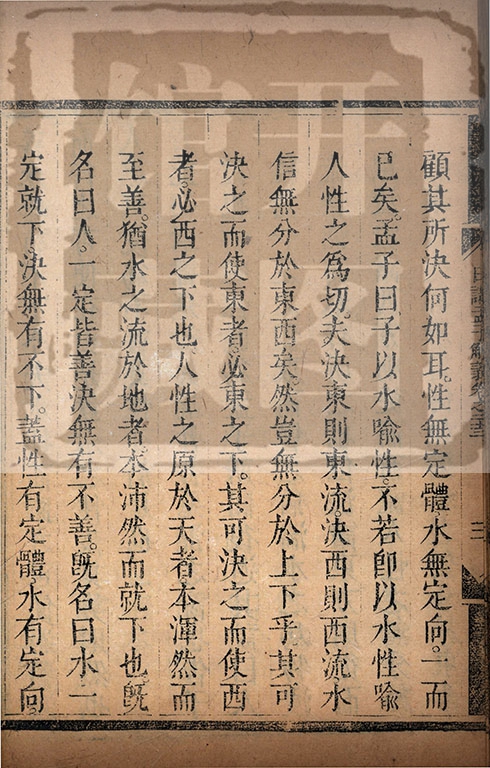 顧其所決何如耳。性無定體。水無定向。一而
已矣。孟子曰。子以水喻性。不若卽以水性喻
人性之為切。夫決東則東流。決西則西流。水
信無分於東西矣。然豈無分於上下乎。其可
決之而使東者。必東之下。其可決之而使西
者。必西之下也。人性之原於天者。本渾然而
至善。猶水之流於地者。本沛然而就下也。旣
名曰人。一定皆善。決無有不善。旣名曰水。一
定就下。決無有不下。蓋性有定體。水有定向。
日講四書解義卷之二十三